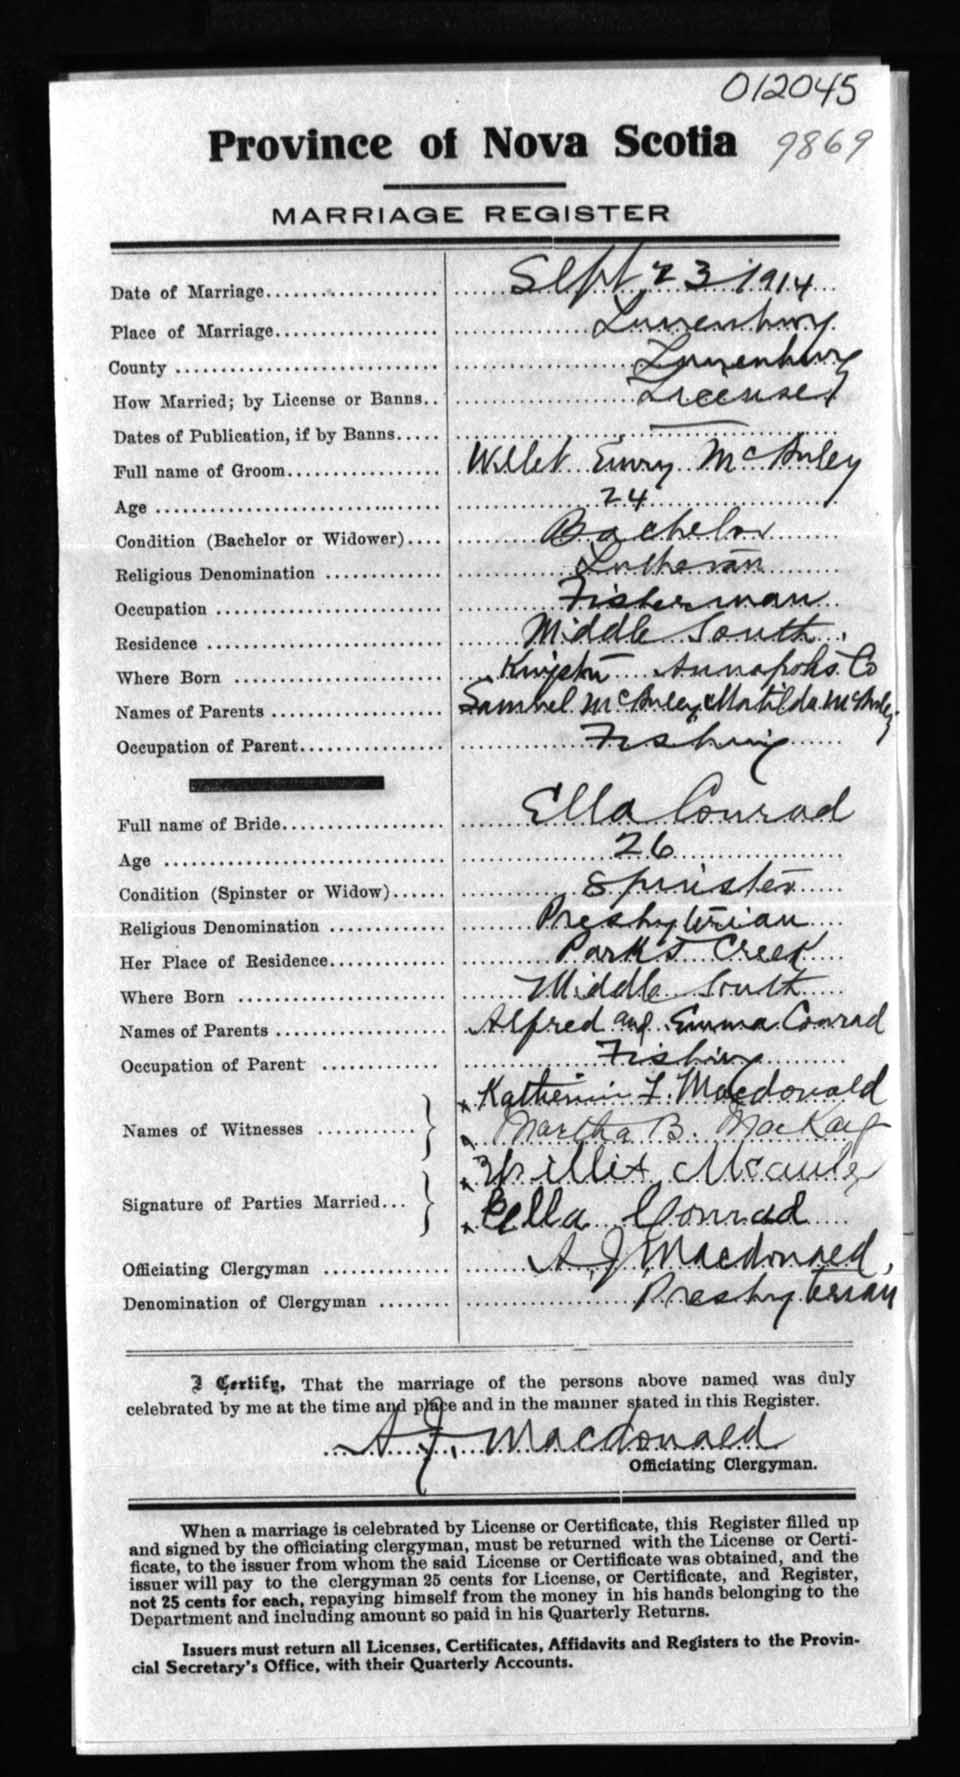 012045
Province of Nova Scotia 9869
MARRIAGE REGISTER
Date of Marriage.................... Sept. 23 1914
Place of Marriage.................. Lunenburg
County ............................. Lunenburg
How Married; by License or Banns.. License
Dates of Publication, if by Banns.....
Full name of Groom................. Willet Emry McAuley
Age ................................ 24
Condition (Bachelor or Widower).... Bachelor
Religious Denomination ............. Lutheran
Occupation ......................... Fisherman
Residence .......................... Middle South
Where Born ........................ Kingston Annapolis Co
Names of Parents ................... Samuel McAuley Matilda McAuley
Occupation of Parent................ Fishing
Full name of Bride.................. Ella Conrad
Age ................................ 26
Condition (Spinster or Widow)...... Spinster
Religious Denomination ............. Presbyterian
Her Place of Residence.............. Parks Creek
Where Born ........................ Middle South
Names of Parents ................... Alfred and Emma Conrad
Occupation of Parent ............... Fishing
x Katherine F. Macdonald
Names of Witnesses ............ } x Martha B. MacKay
x Willis Mcauley
Signature of Parties Married... } x Eella Conrad
Officiating Clergyman .............. A. J. Macdonald,
Denomination of Clergyman ........ Presbyterian
I Certify, That the marriage of the persons above named was duly
celebrated by me at the time and place and in the manner stated in this Register.
A. J. Macdonald
Officiating Clergyman.
When a marriage is celebrated by License or Certificate, this Register filled up
and signed by the officiating clergyman, must be returned with the License or Certi-
ficate, to the issuer from whom the said License or Certificate was obtained, and the
issuer will pay to the clergyman 25 cents for License, or Certificate, and Register,
not 25 cents for each, repaying himself from the money in his hands belonging to the
Department and including amount so paid in his Quarterly Returns.
Issuers must return all Licenses, Certificates, Affidavits and Registers to the Provin-
cial Secretary's Office, with their Quarterly Accounts.